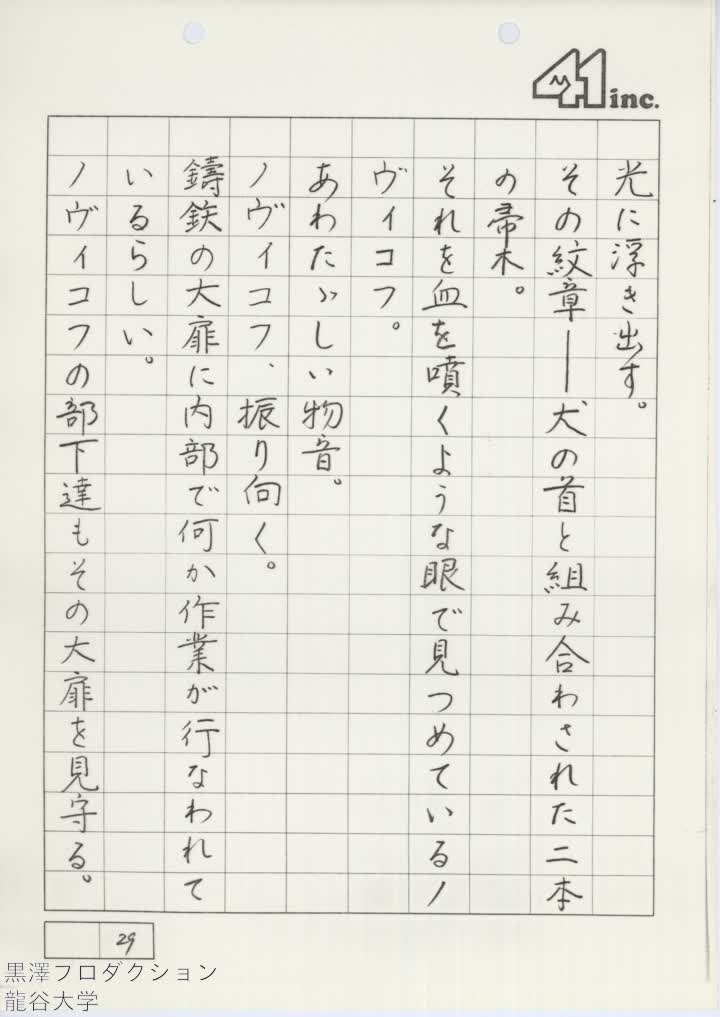 41 inc.
光に浮き出す。
その紋章――犬の首と組み合わされた二本
の帚木。
それを血を噴くような眼で見つめているノ
ヴィコフ。
あわたゞしい物音。
ノヴィコフ、振り向く。
鑄鉄の大扉に内部で何か作業が行なわれて
いるらしい。
ノヴィコフの部下達もその大扉を見守る。
29
黒澤プロダクション
龍谷大学